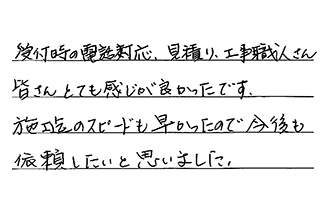 受付時の電話対応、見積り、工事職人さん
皆さんとても感じが良かったです。
施工迄のスピードも早かったので今後も
依頼したいと思いました。